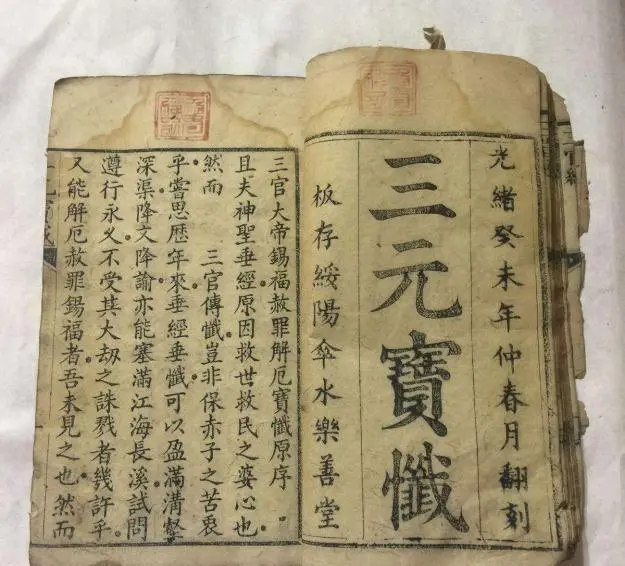 光緒癸未年仲春月翻刻
三元寶懺
板存綏陽傘水樂善堂
三官大帝錫福赦罪解厄寶懺原序
且夫神聖垂經原因救世救民之婆心也
然而 三官傳懺豈非保赤子之苦衷
乎嘗思歷年來垂經垂懺可以盈滿溝壑
深渠降文降諭亦能塞滿江海長溪試問
遵行永乆不受其大劫之誅戮者幾許乎
又能解厄赦罪錫福者吾未見之也然而